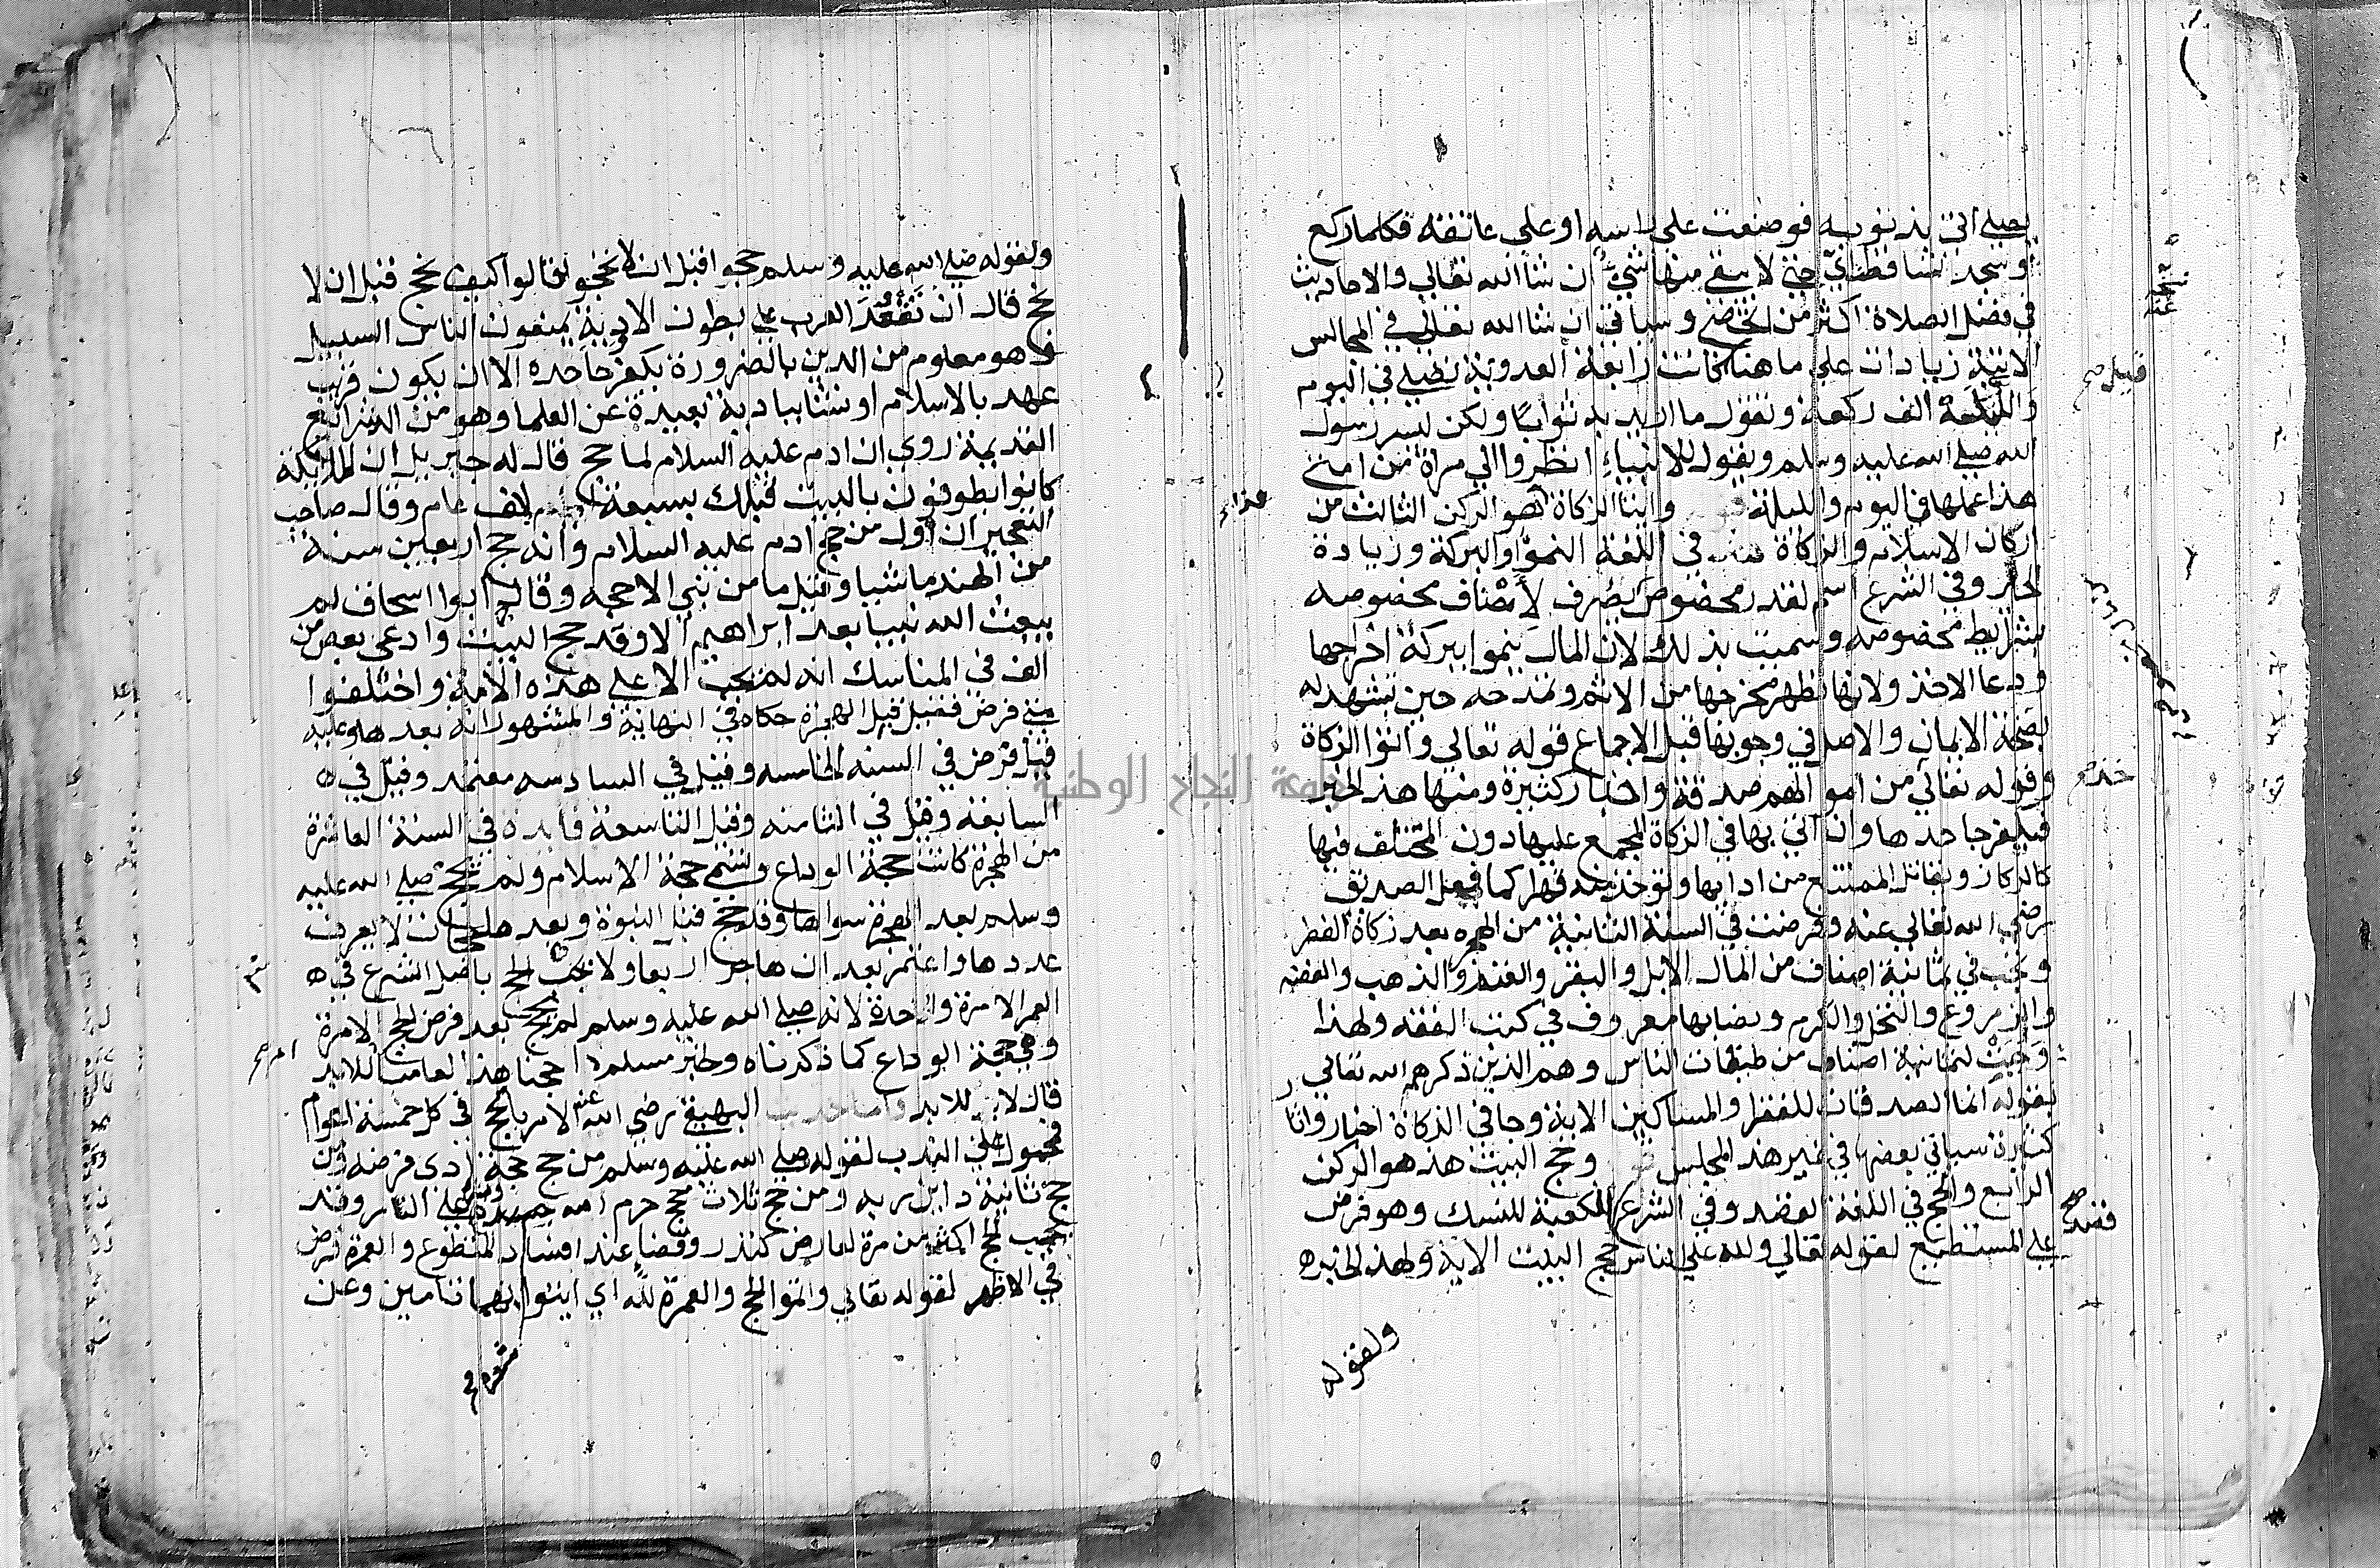 يصلي اتي بذنوبه فوضعت علي راسه او علي عاتقه فكلما ركع
او سجد تساقطت حتي لا يبقي منها شيء ان شا الله تعالي والاحاديث
في فضل الصلاة اكثر من ان تحصي وسياتي ان شا الله تعالي في المجالس
الاتية زيادات علي ما هنا كانت رابعة العدوية تصلي في اليوم
والليلة الف ركعة وتقول ما اريد به ثوابا ولكن ليسر رسول
الله صلي الله عليه وسلم ويقول للانبياء انظروا الي مراة من امتي
هذا عملها في اليوم والليلة وايتا الزكاة هو الركن الثالث من
اركان الاسلام والزكاة في اللغة النمو والبركة وزيادة
الخير وفي الشرع اسم لقدر مخصوص يصرف لاصناف مخصوصه
بشرايط مخصوصه وسميت بذلك لان المال ينموا ببركة اخراجها
ودعا الاخذ ولانها تطهر مخرجها من الاثم وتمدحه حين تشهد له
بصحة الايمان والاصل في وجوبها قبل الاجماع قوله تعالي واتوا الزكاة
وقوله تعالي من اموالهم صدقة واخبار كثيرة ومنها هذ الخبر
فيكفر جاحدها وان اتي بها في الزكاة المجمع عليها دون المختلف فيها
كالركاز ويقاتل الممتنع من ادايها وتوخذ منه قهرا كما فعل الصديق
رضي الله تعالي عنه وفرضت في السنة الثانية من الهجره بعد زكاة الفطر
وتجب في ثمانية اصناف من المال الابل والبقر والغنم والذهب والفضه
والزروع والنخل والكرم ونصابها معروف في كتب الفقه ولهذا
وجبت لثمانية اصناف من طبقات الناس وهم الذين ذكرهم الله تعالي
بقوله انما الصدقات للفقرا والمساكين الاية وجا في الزكاة اخبار واثا
كثيرة سياتي بعضها في غير هذ المجلس وحج البيت هذ هو الركن
الرابع والحج في اللغة القصد وفي الشرع الكعبة للنسك وهو فرض
علي المستطيع لقوله تعالي ولله علي الناس حج البيت الاية ولهذ الخبره
ولقوله
قبل صح
هذا
خذ صح
قصد صح
ولقوله صلي الله عليه وسلم حجو اقبل ان لا تحجو فقالوا كيف نحج قبل ان لا
نحج قال ان تقعد العرب علي بطون الاودية يمنعون الناس السبيل
وهو معلوم من الدين بالضرورة يكفر جاحده الا ان يكون قريب
عهد بالاسلام او نشا ببادية بعيدة عن العلما وهو من الشرايع
القديمة روي ان ادم عليه السلام لما حج قال له جبريل ان الملايكة
كانوا يطوفون بالبيت قبلك بسبعة الاف عام وقال صاحب
التعجيز ان اول من حج ادم عليه السلام وانه حج اربعين سنة
من الهند ماشيا وقيل ما من نبي الا حجه وقال ابوا اسحاق لم
يبعث الله نبيا بعد ابراهيم الا وقد حج البيت وادعي بعض من
الف في المناسك انه لم يجب الا علي هذه الامة واختلفوا
متي فرض فقيل قبل الهجرة حكاه في النهاية والمشهور انه بعدها وعليه
قيل فرض في السنه الخامسه وقيل في السادسه معتمد وقيل في ه
السابعة وقيل في الثامنه وقيل التاسعة فايده في السنة العاشرة
من الهجرة كانت حجة الوداع وتسمي حجة الاسلام ولم يحج صلي الله عليه
وسلم بعد الهجرة سواها وقد حج قبل النبوة وبعدها حجات لا يعرف
عددها واعتمر بعد ان هاجر اربعا ولا يجب الحج باصل الشرع في ه
العمر الا مرة واحدة لانه صلي الله عليه وسلم لم يحج بعد فرض الحج الا مرة
وهي حجة الوداع كما ذكرناه ولخبر مسلم احجنا هذ لعامنا ام للابد
قال لا بل للابد واما حديث البيهقي رضي الله عنه الامر بالحج في كل خمسة اعوام
فمحمول علي الندب لقوله صلي الله عليه وسلم من حج حجة ادي فرضه ومن
حج ثانية داين ربه ومن حج ثلاث حجج حرم الله علي النار وقد
يجب الحج اكثر من مرة لعارض كنذر وقضاء عند افساد التطوع والعمرة فرض
في الاظهر لقوله تعالي واتموا الحج والعمرة لله اي ايتوا بهما تامين وعن
ام صح
جامعة النجاح الوطنية